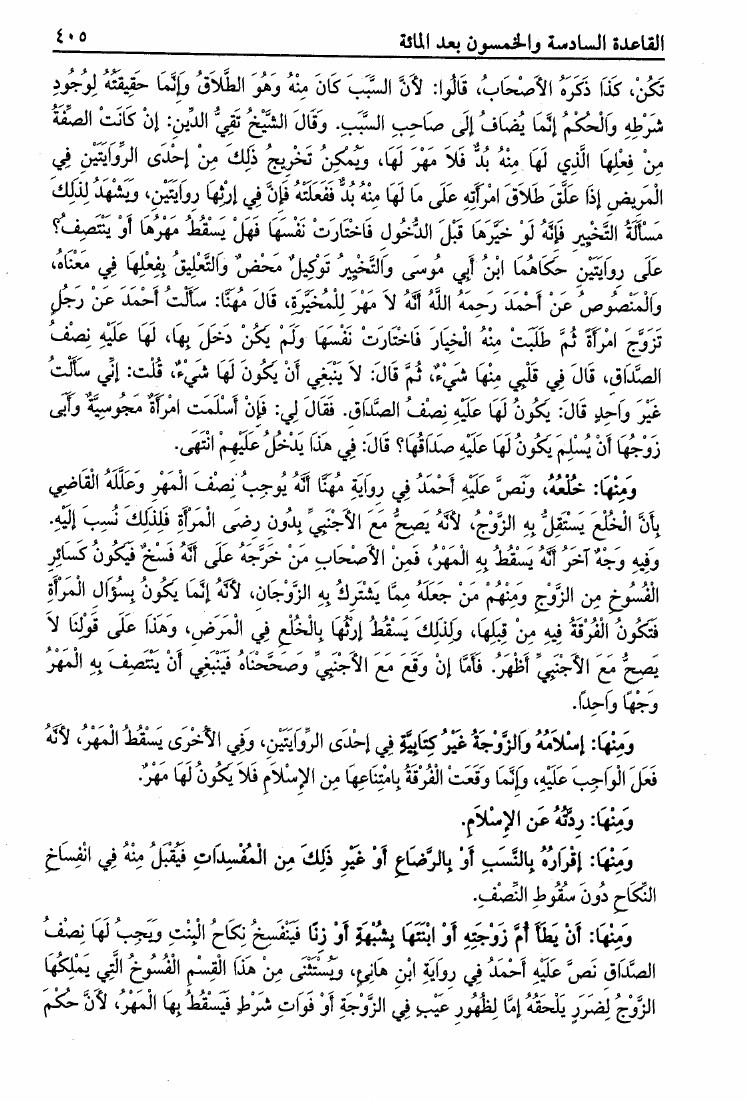 القاعدة السادسة والخمسون بعد المائة ٤٠٥
تَكُنْ، كَذَا ذَكَرَهُ الأَصْحَابُ، قَالُوا: لأَنَّ السَّبَبَ كَانَ مِنْهُ وَهُوَ الطَّلاَقُ وَإِنَّمَا حَقِيقَتُهُ لِوُجُودِ
شَرْطِهِ وَالْحُكْمُ إِنَّمَا يُضَافُ إِلَى صَاحِبِ السَّبَبِ. وَقَالَ الشَّيْخُ تَقِيُّ الدِّينِ: إِنْ كَانَتْ الصِّفَةُ
مِنْ فِعْلِهَا الَّذِي لَهَا مِنْهُ بُدٌّ فَلاَ مَهْرَ لَهَا، وَيُمْكِنُ تَخْرِيجُ ذَلِكَ مِنْ إِحْدَى الرِّوَايَتَيْنِ فِي
الْمَرِيضِ إِذَا عَلَّقَ طَلاَقَ امْرَأَتِهِ عَلَى مَا لَهَا مِنْهُ بُدٌّ فَفَعَلَتْهُ فَإِنَّ فِي إِرْثِهَا رِوَايَتَيْنِ، وَيَشْهَدُ لِذَلِكَ
مَسْأَلَةُ التَّخْيِيرِ فَإِنَّهُ لَوْ خَيَّرَهَا قَبْلَ الدُّخُولِ فَاخْتَارَتْ نَفْسَهَا فَهَلْ يَسْقُطُ مَهْرُهَا أَوْ يَنْتَصِفُ؟
عَلَى رِوَايَتَيْنِ حَكَاهُمَا ابْنُ أَبِي مُوسَى وَالتَّخْيِيرُ تَوْكِيلٌ مَحْضٌ وَالتَّعْلِيقُ بِفِعْلِهَا فِي مَعْنَاهُ،
وَالْمَنْصُوصُ عَنْ أَحْمَدَ رَحِمَهُ اللَّهُ أَنَّهُ لاَ مَهْرَ لِلْمُخَيَّرَةِ، قَالَ مُهَنَّا: سَأَلْتُ أَحْمَدَ عَنْ رَجُلٍ
تَزَوَّجَ امْرَأَةً ثُمَّ طَلَبَتْ مِنْهُ الْخِيَارَ فَاخْتَارَتْ نَفْسَهَا وَلَمْ يَكُنْ دَخَلَ بِهَا، لَهَا عَلَيْهِ نِصْفُ
الصَّدَاقِ، قَالَ فِي قَلْبِي مِنْهَا شَيْءٌ، ثُمَّ قَالَ: لاَ يَنْبَغِي أَنْ يَكُونَ لَهَا شَيْءٌ، قُلْت: إِنِّي سَأَلْتُ
غَيْرَ وَاحِدٍ قَالَ: يَكُونُ لَهَا عَلَيْهِ نِصْفُ الصَّدَاقِ. فَقَالَ لِي: فَإِنْ أَسْلَمَت امْرَأَةٌ مَجُوسِيَّةٌ وَأَبَى
زَوْجُهَا أَنْ يُسْلِمَ يَكُونُ لَهَا عَلَيْهِ صَدَاقُهَا؟ قَالَ: فِي هَذَا يَدْخُلُ عَلَيْهِمْ انْتَهَى.
وَمِنْهَا: خُلْعُهُ، وَنَصَّ عَلَيْهِ أَحْمَدُ فِي رِوَايَةِ مُهَنَّا أَنَّهُ يُوجِبُ نِصْفَ الْمَهْرِ وَعَلَّلَهُ الْقَاضِي
بِأَنَّ الْخُلْعَ يَسْتَقِلُّ بِهِ الزَّوْجُ، لأَنَّهُ يَصِحُّ مَعَ الأَجْنَبِيِّ بِدُونِ رِضَى الْمَرْأَةِ فَلِذَلِكَ نُسِبَ إِلَيْهِ.
وَفِيهِ وَجْهٌ آخَرُ أَنَّهُ يَسْقُطُ بِهِ الْمَهْرُ، فَمِنْ الأَصْحَابِ مَنْ خَرَّجَهُ عَلَى أَنَّهُ فَسْخٌ فَيَكُونُ كَسَائِرِ
الْفُسُوخِ مِن الزَّوْجِ وَمِنْهُمْ مَنْ جَعَلَهُ مِمَّا يَشْتَرِكُ بِهِ الزَّوْجَانِ، لأَنَّهُ إِنَّمَا يَكُونُ بِسُؤَالِ الْمَرْأَةِ
فَتَكُونُ الْفُرْقَةُ فِيهِ مِنْ قِبَلِهَا، وَلِذَلِكَ يَسْقُطُ إِرْثُهَا بِالْخُلْعِ فِي الْمَرَضِ، وَهَذَا عَلَى قَوْلِنَا لاَ
يَصِحُّ مَعَ الأَجْنَبِيِّ أَظْهَرُ. فَأَمَّا إِنْ وَقَعَ مَعَ الأَجْنَبِيِّ وَصَحَّحْنَاهُ فَيَنْبَغِي أَنْ يَنْتَصِفَ بِهِ الْمَهْرُ
وَجْهًا وَاحِدًا.
وَمِنْهَا: إِسْلاَمُهُ وَالزَّوْجَةُ غَيْرُ كِتَابِيَّةٍ فِي إِحْدَى الرِّوَايَتَيْنِ، وَفِي الأُخْرَى يَسْقُطُ الْمَهْرُ، لأَنَّهُ
فَعَلَ الْوَاجِبَ عَلَيْهِ، وَإِنَّمَا وَقَعَتْ الْفُرْقَةُ بِامْتِنَاعِهَا مِن الإِسْلاَمِ فَلاَ يَكُونُ لَهَا مَهْرٌ.
وَمِنْهَا: رِدَّتُهُ عَن الإِسْلاَمِ.
وَمِنْهَا: إِقْرَارُهُ بِالنَّسَبِ أَوْ بِالرَّضَاعِ أَوْ غَيْرِ ذَلِكَ مِن الْمُفْسِدَاتِ فَيُقْبَلُ مِنْهُ فِي انْفِسَاخِ
النِّكَاحِ دُونَ سُقُوطِ النِّصْفِ.
وَمِنْهَا: أَنْ يَطَأَ أُمَّ زَوْجَتِهِ أَوْ ابْنَتَهَا بِشُبْهَةٍ أَوْ زِنًا فَيَنْفَسِخُ نِكَاحُ الْبِنْتِ وَيَجِبُ لَهَا نِصْفُ
الصَّدَاقِ نَصَّ عَلَيْهِ أَحْمَدُ فِي رِوَايَةِ ابْنِ هَانِئٍ، وَيُسْتَثْنَى مِنْ هَذَا الْقِسْمِ الْفُسُوخُ الَّتِي يَمْلِكُهَا
الزَّوْجُ لِضَرَرٍ يَلْحَقُهُ إِمَّا لِظُهُورِ عَيْبٍ فِي الزَّوْجَةِ أَوْ فَوَاتِ شَرْطٍ فَيَسْقُطُ بِهَا الْمَهْرُ، لأَنَّ حُكْمَ